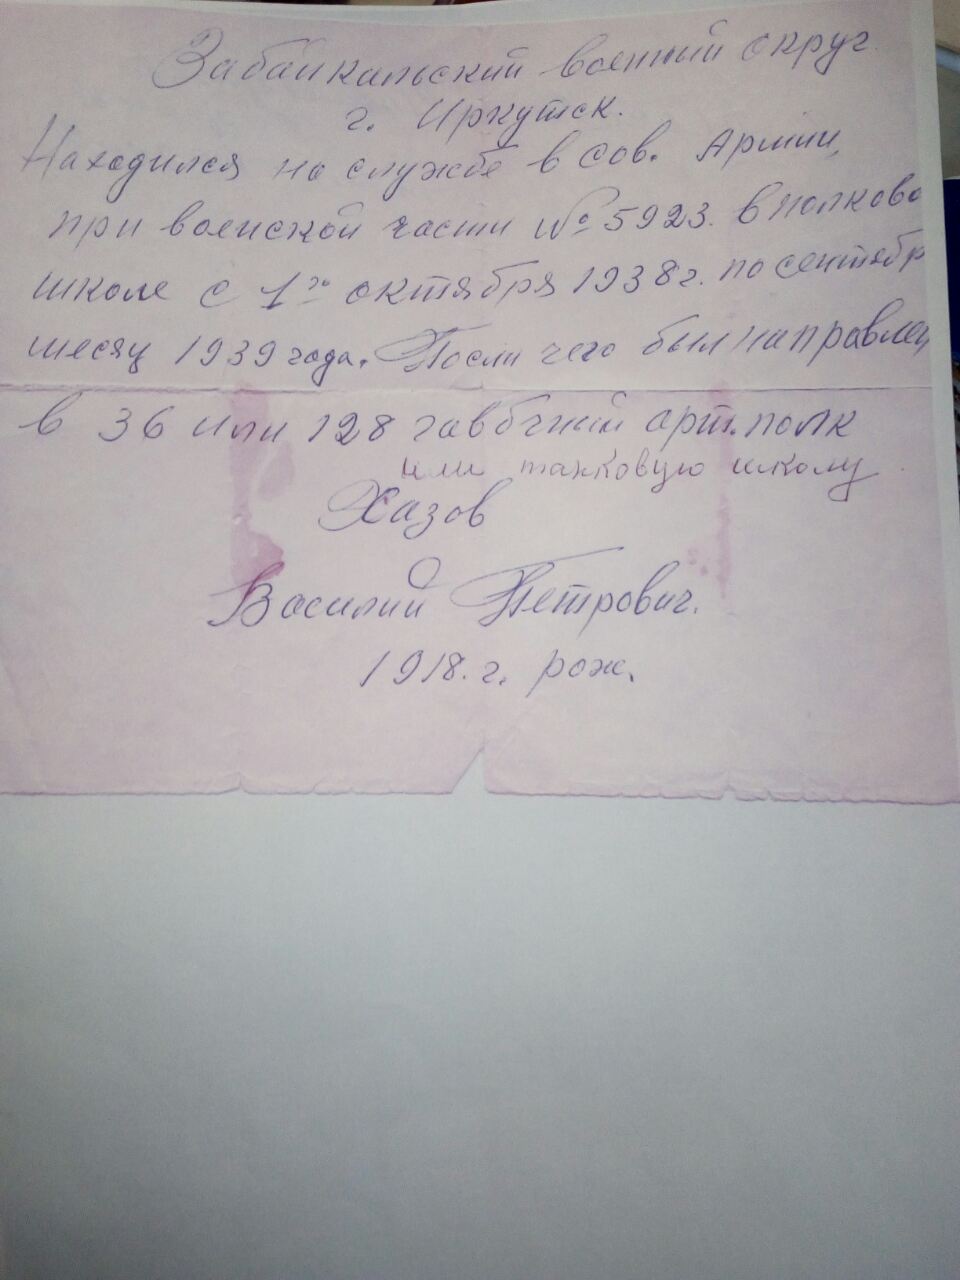 Забайкальский военный округ
г. Иркутск.
Находился на службе в Сов. Армии,
при воинской части № 5923. в полково
школе с 1го октября 1938 г. по сентябр
месяц 1939 года. Посли чего был направлен
в 36 или 128 гавбичний арт. полк
или танковую школу
Хазов
Василий Петрович.
1918. г. рож.